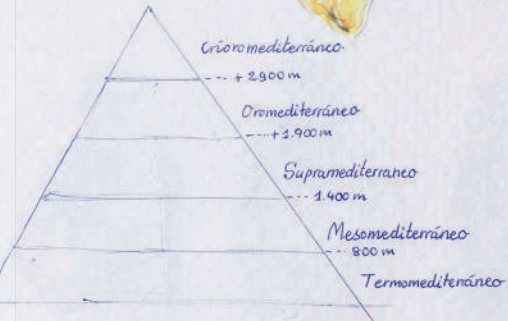 Crioromediterráneo
--- + 2900 m
Oromediterráneo
---+1.900 m
Supramediterraneo
--- 1.400 m
Mesomediterráneo
--- 800 m
Termomediterráneo